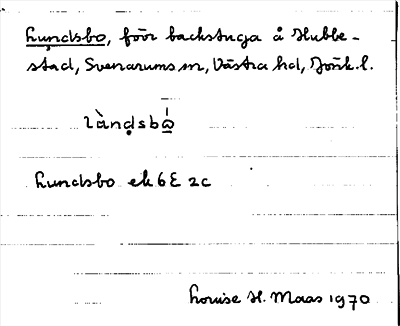 Lundsbo, förr backstuga å Hubbe-
stad, Svenarums sn, Västra hd, Jönk. l.
làn̥dsbω̲̍
Lundsbo ek 6E 2c
Louise H. Maas 1970